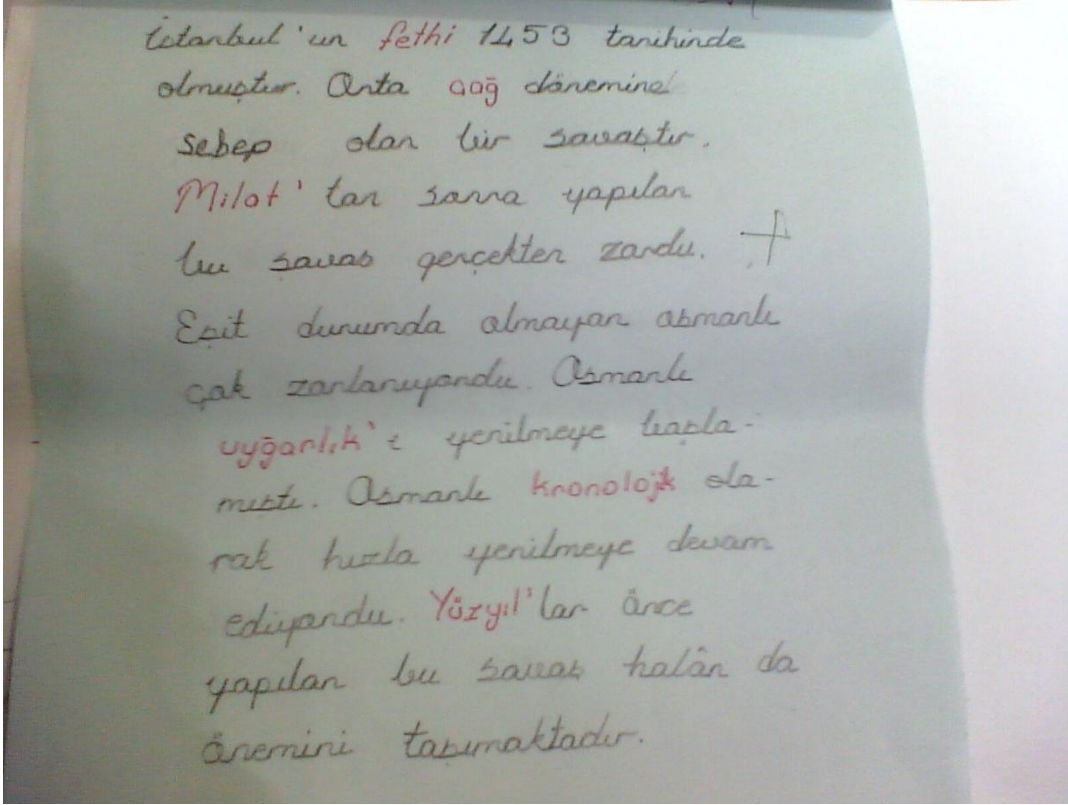 İstanbul'un fethi 1453 tarihinde
olmuştur. Orta çağ dönemine
sebep olan bir savaştır.
Milat'tan sonra yapılan
bu savaş gerçekten zordu.
Eşit durumda olmayan osmanlı
çok zorlanıyordu. Osmanlı
uyğarlık'ı yenilmeye başla-
mıştı. Osmanlı kronolojik ola-
rak hızla yenilmeye devam
ediyordu. Yüzyıl'lar önce
yapılan bu savaş halân da
önemini taşımaktadır.